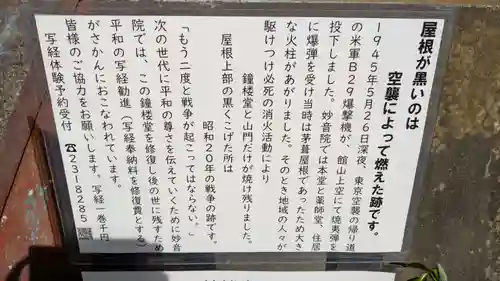 屋根が黒いのは
空襲によって燃えた跡です。
1945年5月26日深夜、東京空襲の帰り道
の米軍B29爆撃機が、館山上空にて焼夷弾を
投下しました。妙音院では本堂と薬師堂、住居
に爆弾を受け当時は茅葺屋根であったため大き
な火柱があがりました。そのとき地域の人々が
駆けつけ必死の消火活動により
鐘楼堂と山門だけが焼け残りました。
屋根上部の黒くこげた所は
昭和20年の戦争の跡です。
「もう二度と戦争が起こってはならない。」
次の世代に平和の尊さを伝えていくために妙音
院では、この鐘楼堂を修復し後の世に残すため
平和の写経勧進（写経奉納料を修復費とする）
がさかんにおこなわれています。
皆様のご協力をお願いします。写経一巻千円
写経体験予約受付 ☎23-8285